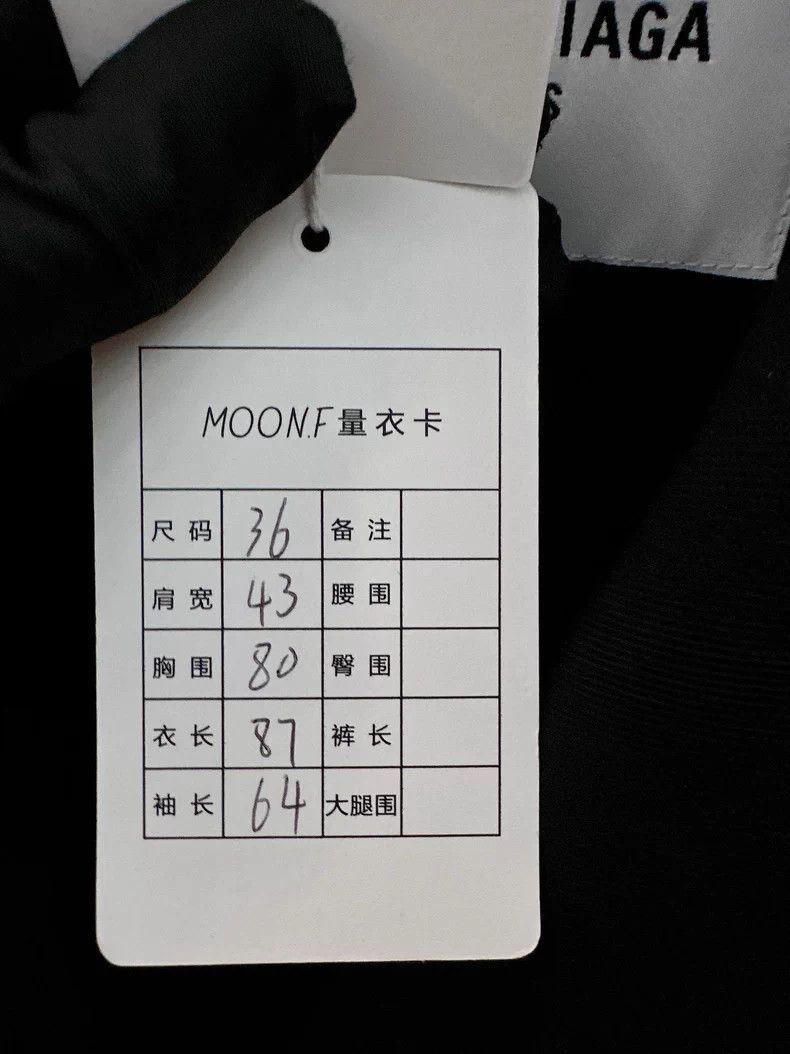 IAGA
S
MOON.F量衣卡
尺码 36 备注
肩宽 43 腰围
胸围 80 臀围
衣长 87 裤长
袖长 64 大腿围